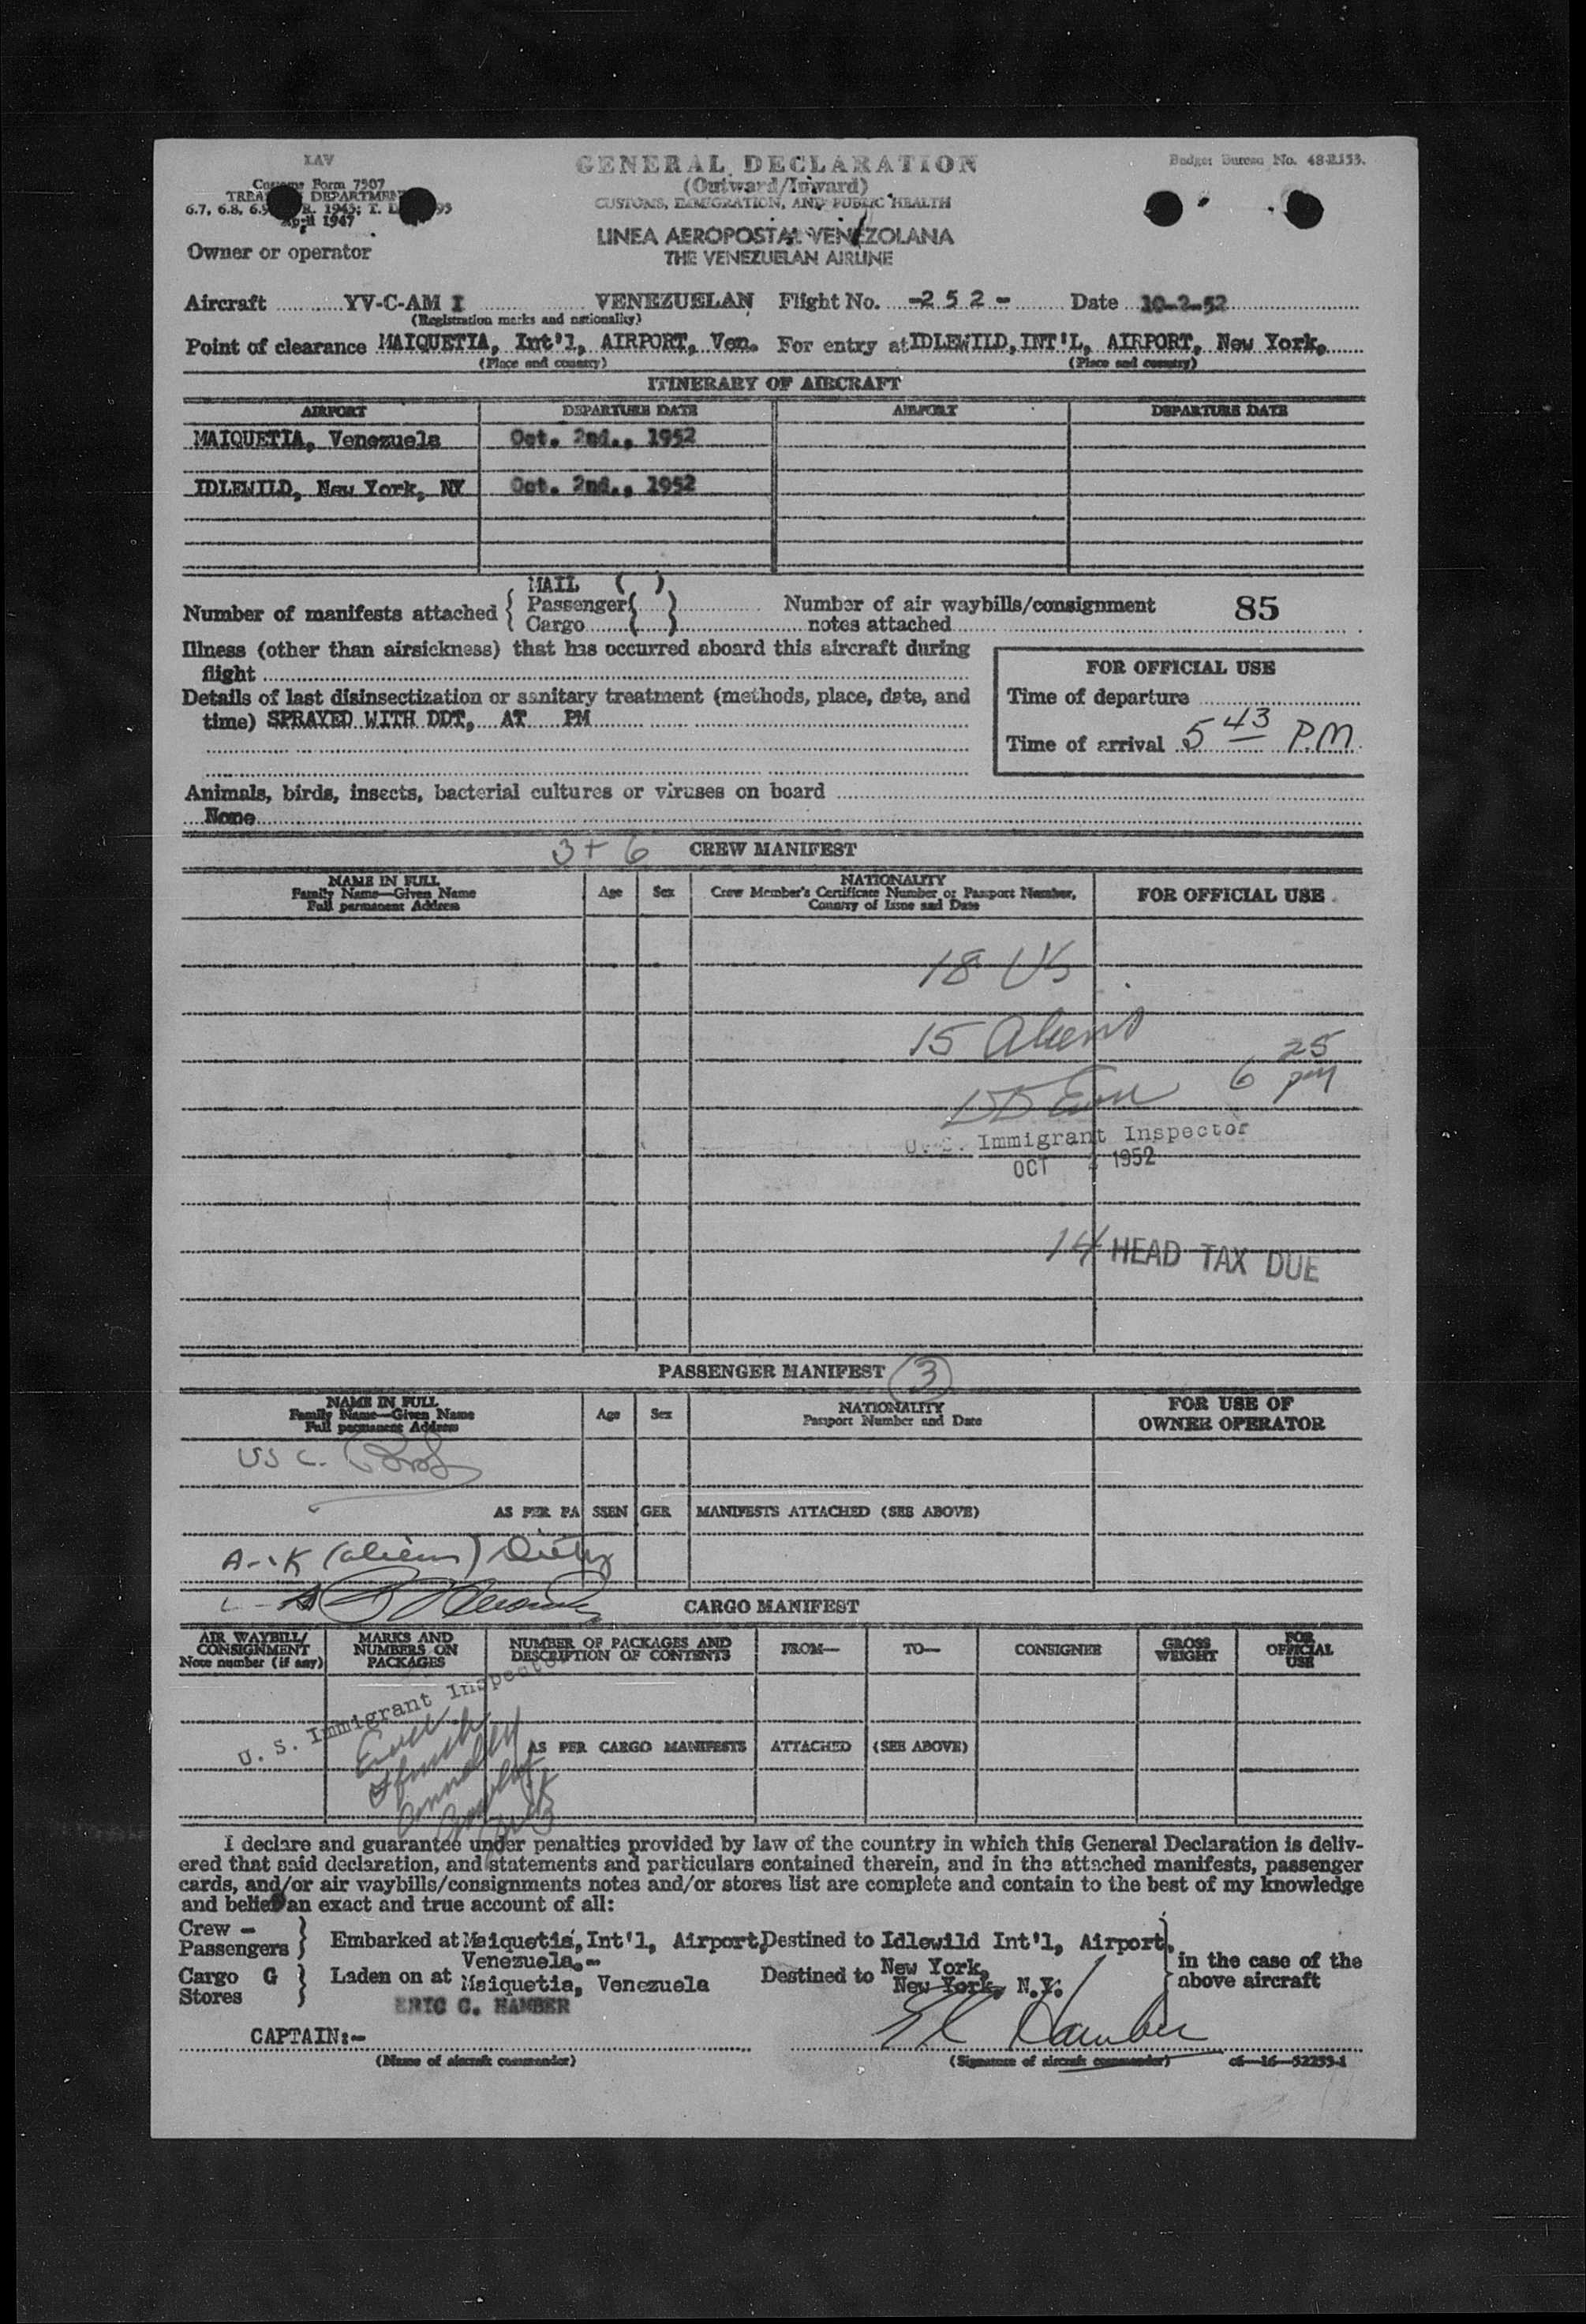 LAV
GENERAL DECLARATION
Budget Bureau No. 48-R353.
(Outward/Inward)
Customs Form 7507
TREASURY DEPARTMENT
CUSTOMS, IMMIGRATION, AND PUBLIC HEALTH
April 1947
LINEA AEROPOSTAL VENEZOLANA
Owner or operator
THE VENEZUELAN AIRLINE
Aircraft YV-C-AM I VENEZUELAN Flight No. -2 5 2 - Date 10-2-52
(Registration marks and nationality)
Point of clearance MAIQUETIA, Int'l, AIRPORT, Ven. For entry at IDLEWILD, INT'L, AIRPORT, New York,
(Place and country) (Place and country)
ITINERARY OF AIRCRAFT
AIRPORT DEPARTURE DATE AIRPORT DEPARTURE DATE
MAIQUETIA, Venezuela Oct. 2nd., 1952
IDLEWILD, New York, NY Oct. 2nd., 1952
MAIL ( )
Number of manifests attached { Passenger ( ) Number of air waybills/consignment 85
Cargo ( ) notes attached
Illness (other than airsickness) that has occurred aboard this aircraft during
flight
FOR OFFICIAL USE
Details of last disinsectization or sanitary treatment (methods, place, date, and
Time of departure
time) SPRAYED WITH DDT, AT PM
Time of arrival 5 43 P.M.
Animals, birds, insects, bacterial cultures or viruses on board
None
3 + 6 CREW MANIFEST
NAME IN FULL
Family Name—Given Name
Full permanent Address
Age Sex
NATIONALITY
Crew Member's Certificate Number or Passport Number,
Country of Issue and Date
FOR OFFICIAL USE
18 US
15 aliens
6 25 pm
U.S. Immigrant Inspector
OCT 1952
14 HEAD TAX DUE
PASSENGER MANIFEST 3
NAME IN FULL
Family Name—Given Name
Full permanent Address
Age Sex
NATIONALITY
Passport Number and Date
FOR USE OF
OWNER OPERATOR
US C.
AS PER PASSENGER MANIFESTS ATTACHED (SEE ABOVE)
A-K (aliens)
CARGO MANIFEST
AIR WAYBILL/
CONSIGNMENT
Note number (if any)
MARKS AND
NUMBERS ON
PACKAGES
NUMBER OF PACKAGES AND
DESCRIPTION OF CONTENTS
FROM— TO— CONSIGNEE
GROSS
WEIGHT
FOR
OFFICIAL
USE
U. S. Immigrant Inspector
AS PER CARGO MANIFESTS ATTACHED (SEE ABOVE)
I declare and guarantee under penalties provided by law of the country in which this General Declaration is deliv-
ered that said declaration, and statements and particulars contained therein, and in the attached manifests, passenger
cards, and/or air waybills/consignments notes and/or stores list are complete and contain to the best of my knowledge
and belief an exact and true account of all:
Crew -
Passengers } Embarked at Maiquetia, Int'l, Airport, Destined to Idlewild Int'l, Airport,
Venezuela.- New York,
in the case of the
above aircraft
Cargo G
Stores } Laden on at Maiquetia, Venezuela Destined to New York, N.Y.
ERIC C. HAMBER
CAPTAIN:-
(Name of aircraft commander) (Signature of aircraft commander) c6—16—52255-1